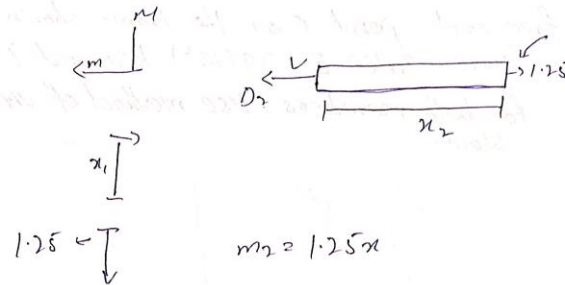 M
m
V
1.25
D₂
x₂
x₁
1.25
m₂ = 1.25x